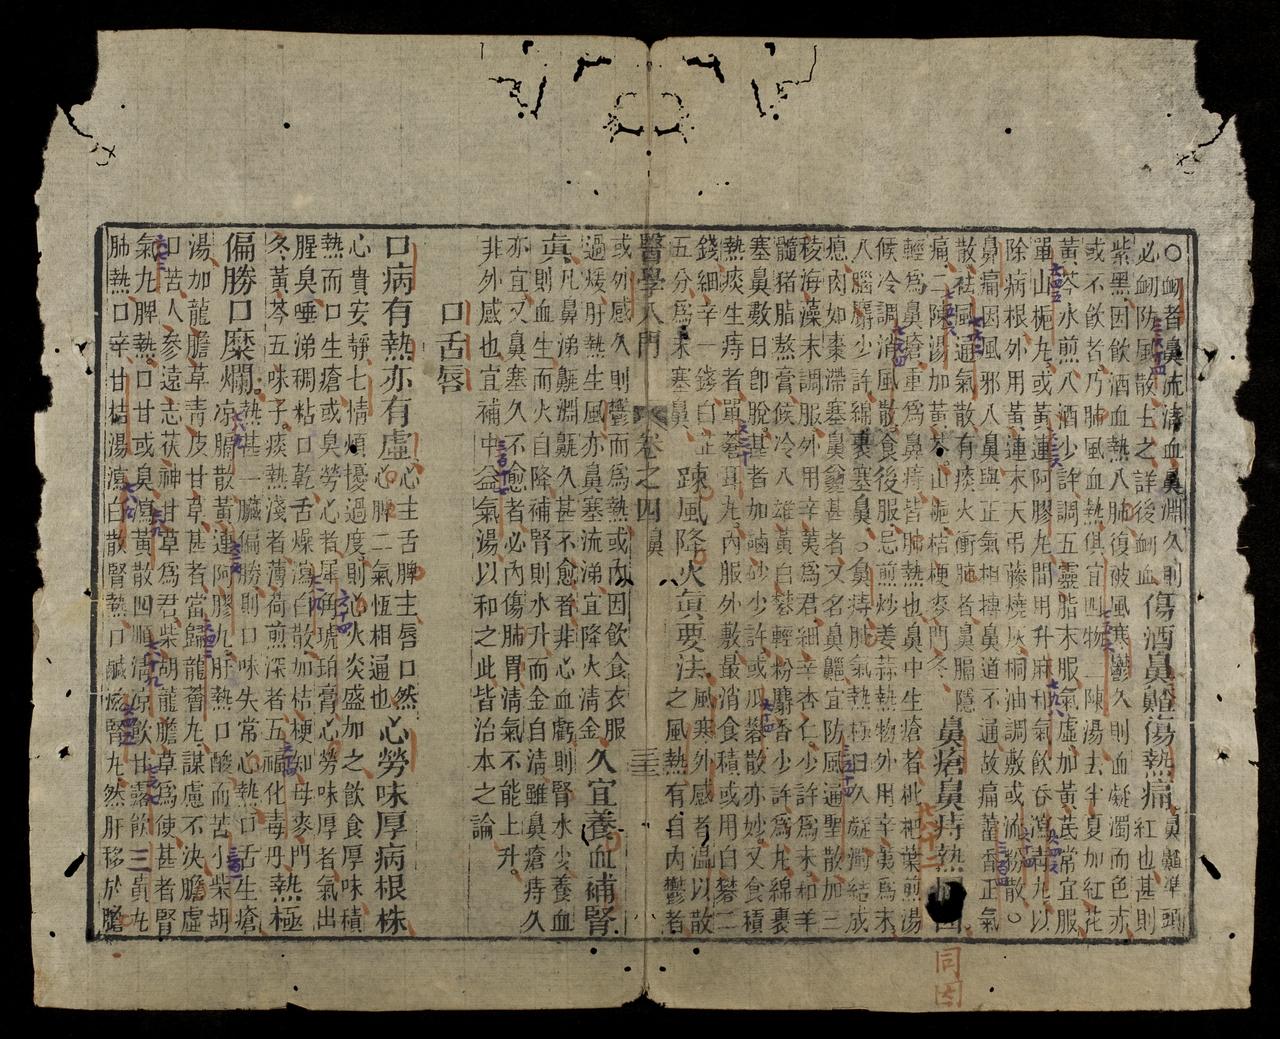 ○衄者鼻流清血鼻淵久則傷酒鼻齄傷熱痛鼻齄準頭
必衄防風散主之詳後衄血紅也甚則
紫黑因飲酒血熱入肺復被風寒鬱久則血凝濁而色赤
或不飲者乃肺風血熱俱宜四物二陳湯去半夏加紅花
黃芩水煎入酒少許調五靈脂末服氣虛加黃芪常宜服
單山梔丸或黃連阿膠丸間用升麻和氣飲吞瀉青丸以
除病根外用黃連末天弔藤燒灰桐油調敷或流粉散○
鼻痛因風邪入鼻與正氣相搏鼻道不通故痛藿香正氣
散祛風通氣散有痰火衝肺者鼻膈隱
痛二陳湯加黃芩山梔桔梗麥門冬鼻瘡鼻痔熱
輕爲鼻瘡重爲鼻痔皆肺熱也鼻中生瘡者枇杷葉煎湯
候冷調消風散食後服忌煎炒姜蒜熱物外用辛荑爲末
入腦麝少許綿裹塞鼻○鼻痔肺氣熱極日久凝濁結成
瘜肉如棗滯塞鼻甕甚者又名鼻齆宜防風通聖散加三
稜海藻末調服外用辛荑爲君細辛杏仁少許爲末和羊
髓猪脂熬膏候冷入雄黃白礬輕粉麝香少許爲丸綿裹
塞鼻數日卽脫甚者加磠砂少許或瓜礬散亦妙又食積
熱痰生痔者單蒼耳丸內服外敷最消食積或用白礬二
錢細辛一錢白芷疎風降火眞要法風寒外感者溫以散
五分爲末塞鼻之風熱有自內鬱者
醫學入門 卷之四鼻 三三
或外感久則鬱而爲熱或內因飲食衣服久宜養血補腎
過煖肝熱生風亦鼻塞流涕宜降火清金
眞凡鼻涕鼽淵齇久甚不愈者非心血虧則腎水少養血
則血生而火自降補腎則水升而金自清雖鼻瘡痔久
亦宜又鼻塞久不愈者必內傷肺胃清氣不能上升
非外感也宜補中益氣湯以和之此皆治本之論
口舌唇
口病有熱亦有虛心主舌脾主唇口然心勞味厚病根株
心脾二氣恆相通也
心貴安靜七情煩擾過度則心火炎盛加之飲食厚味積
熱而口生瘡或臭勞心者犀角琥珀膏心勞味厚者氣出
腥臭唾涕稠粘口乾舌燥瀉白散加桔梗知母麥門
冬黃芩五味子痰熱淺者薄荷煎深者五福化毒丹熱極
偏勝口糜爛熱甚一臟偏勝則口味失常心熱口舌生瘡
凉膈散黃連阿膠丸肝熱口酸而苦小柴胡
湯加龍膽草靑皮甘草甚者當歸龍薈丸謀慮不決膽虛
口苦人參遠志茯神甘草爲君柴胡龍膽草爲使甚者腎
氣丸脾熱口甘或臭瀉黃散四順清凉飲甘露飲三黃丸
肺熱口辛甘桔湯瀉白散腎熱口鹹滋腎丸然肝移於膽
同因